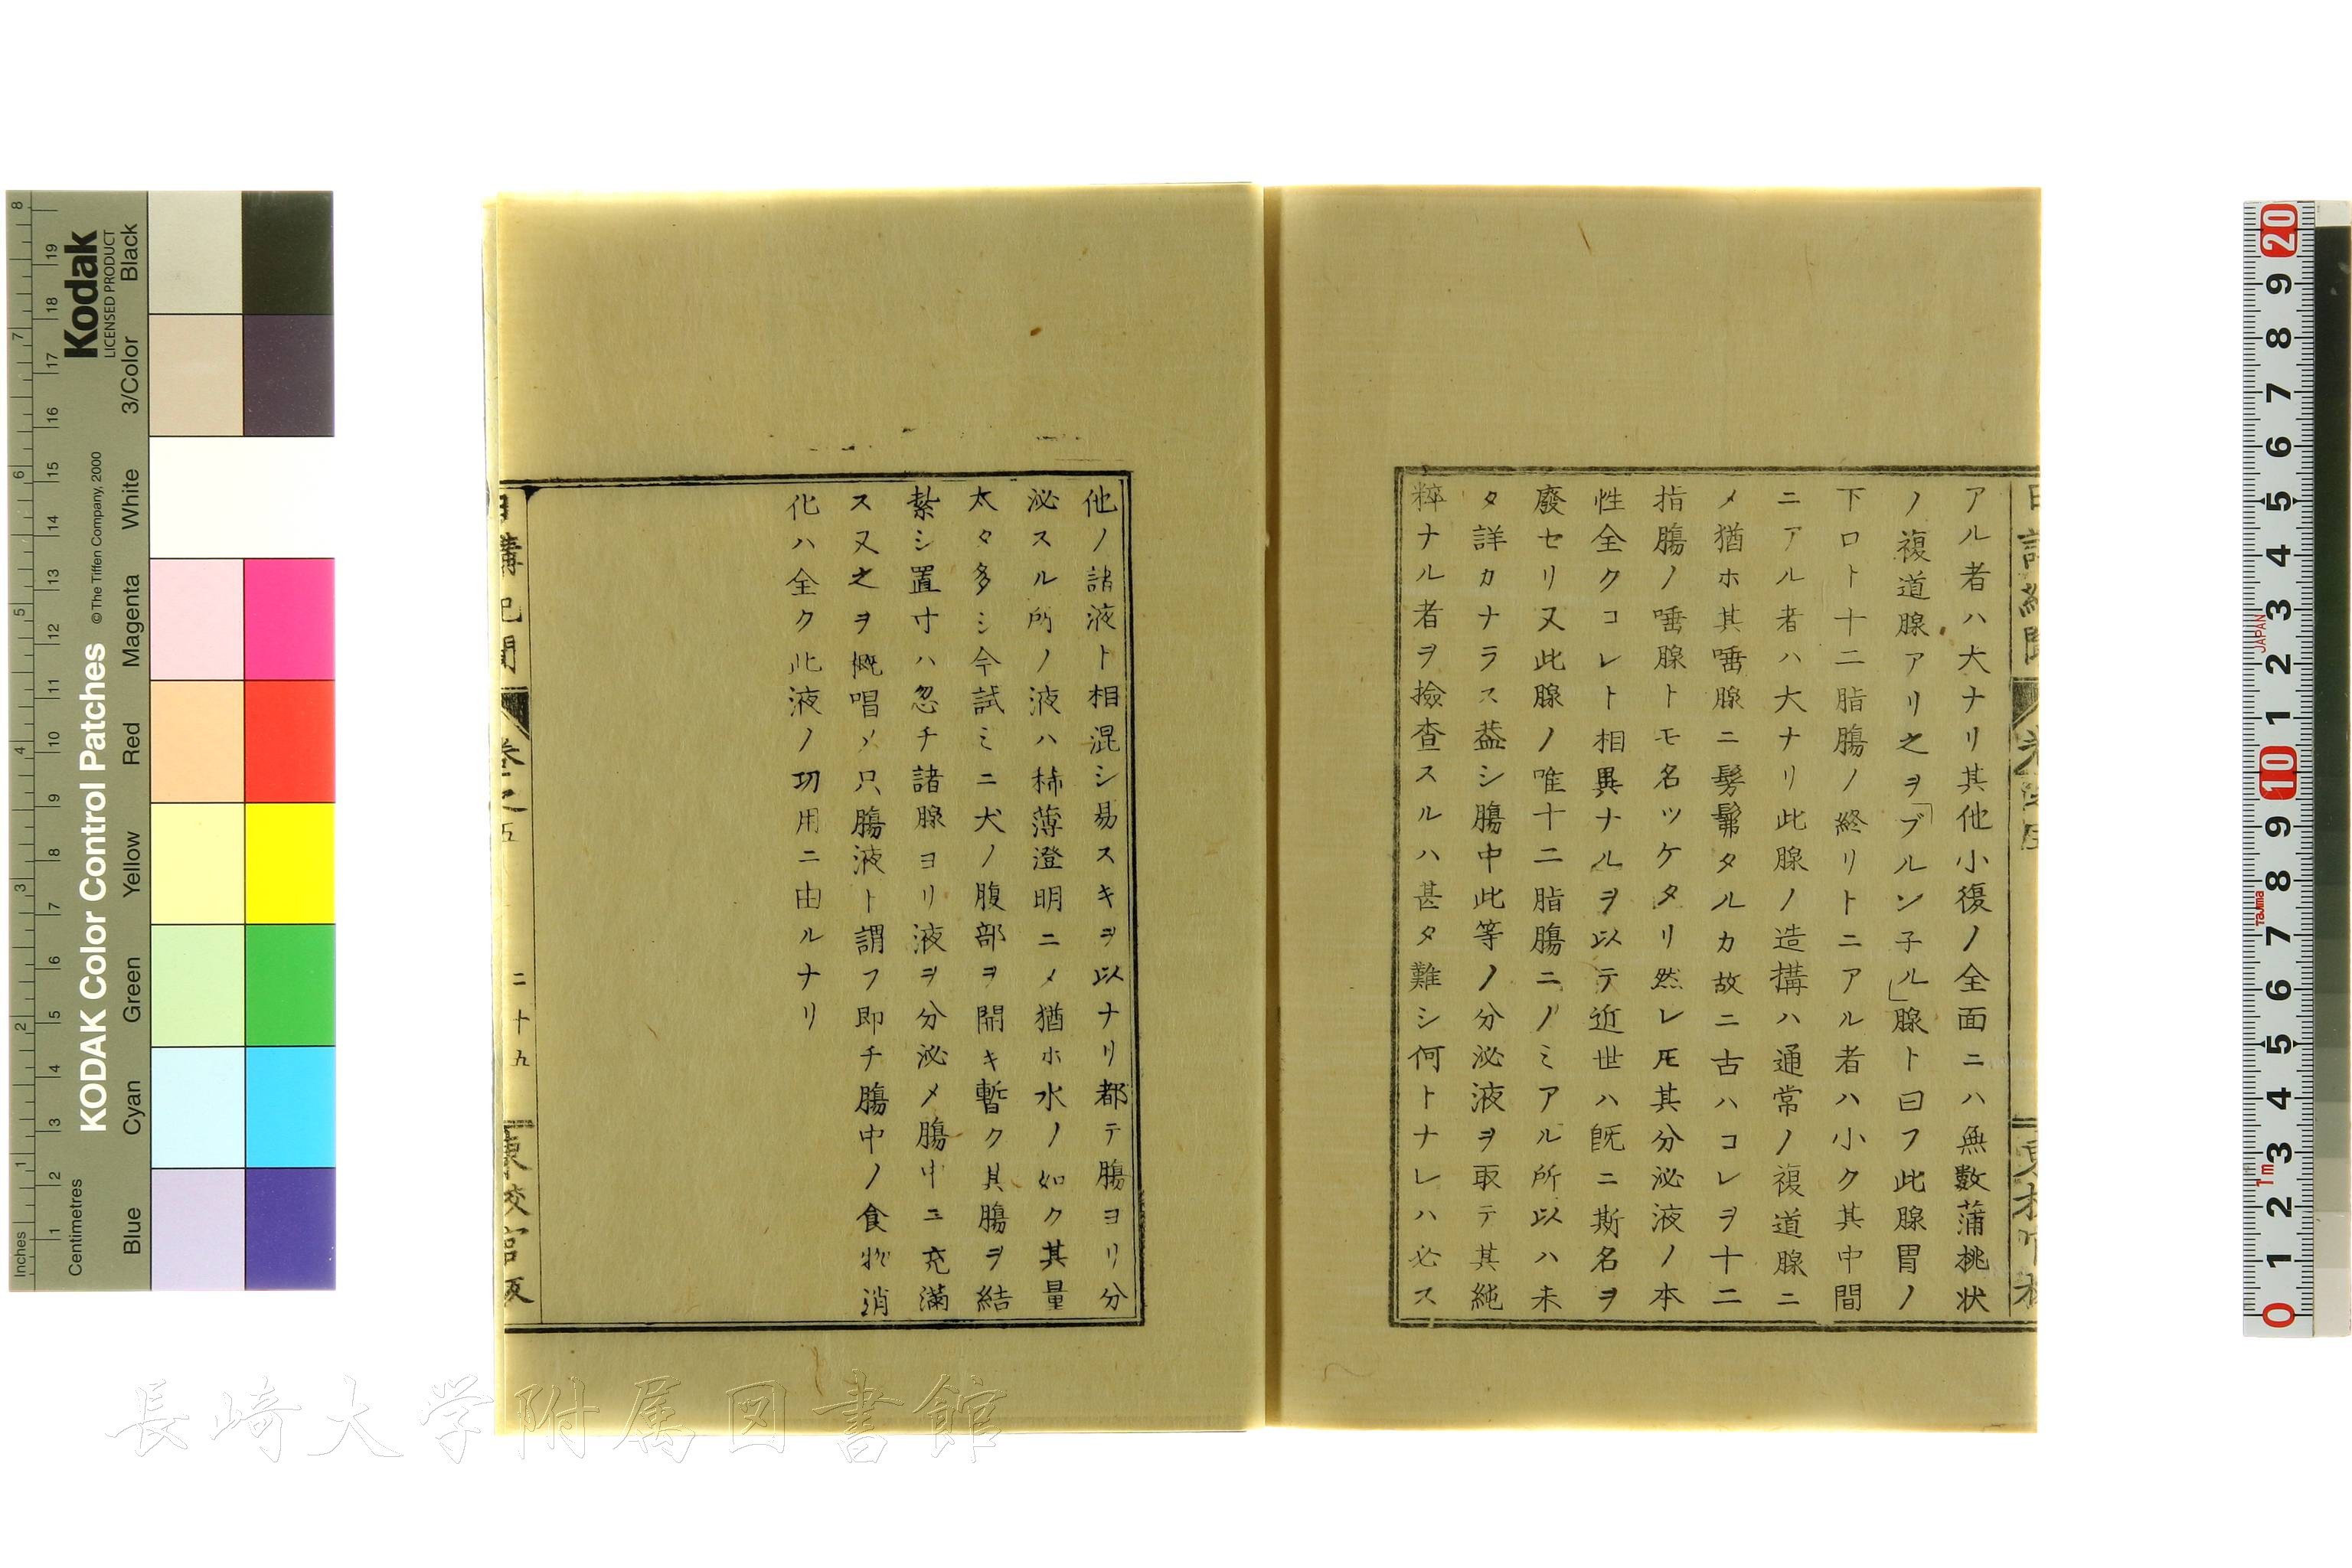 アル者ハ大ナリ其他小復ノ全面ニハ無數蒲桃状
ノ複道腺アリ之ヲ「ブルン子ル」腺ト曰フ此腺胃ノ
下口ト十二脂膓ノ終リトニアル者ハ小ク其中間
ニアル者ハ大ナリ此腺ノ造搆ハ通常ノ複道腺ニ
メ猶ホ其唾腺ニ髣髴タルカ故ニ古ハコレヲ十二
指膓ノ唾腺トモ名ツケタリ然レ𪜈其分泌液ノ本
性全クコレト相異ナルヲ以テ近世ハ既ニ斯名ヲ
廢セリ又此腺ノ唯十二脂膓ニノミアル所以ハ未
タ詳カナラス葢シ膓中此等ノ分泌液ヲ取テ其純
粹ナル者ヲ撿查スルハ甚タ難シ何トナレハ必ス
他ノ諸液ト相混シ易スキヲ以ナリ都テ膓ヨリ分
泌スル所ノ液ハ稀薄澄明ニメ猶ホ水ノ如ク其量
太タ多シ今試ミニ犬ノ腹部ヲ開キ暫ク其膓ヲ結
紮シ置寸ハ忽チ諸腺ヨリ液ヲ分泌メ膓中ニ充滿
ス又之ヲ概唱メ只膓液ト謂フ即チ膓中ノ食物消
化ハ全ク此液ノ功用ニ由ルナリ
日講記聞 卷之五 二十九 東校官版
KODAK Color Control Patches
Kodak
LICENSED PRODUCT
© The Tiffen Company, 2000
Inches
Centimetres
Blue Cyan Green Yellow Red Magenta White 3/Color Black
JAPAN
Tajima
1m
長崎大学附属図書館